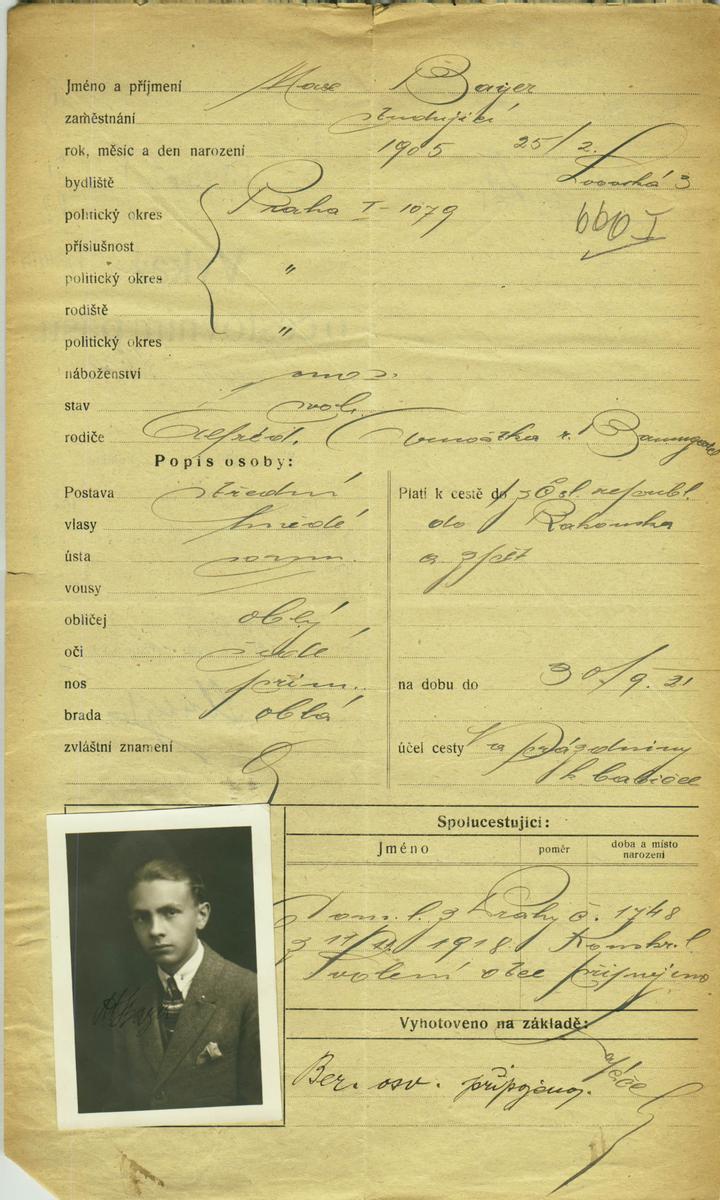 Jméno a příjmení Max Bayer
zaměstnání studující
rok, měsíc a den narození 1905 25/2.
bydliště 3
politický okres Praha I-1079
660 I
příslušnost
politický okres "
rodiště
politický okres "
náboženství
stav svob.
rodiče Alfréd, r.
Popis osoby:
Postava střední
vlasy hnědé
ústa norm.
vousy
obličej oblý
oči šedé
nos přim.
brada oblá
zvláštní znamení
Platí k cestě do z Čsl. republ.
do Rakouska
a zpět
na dobu do 30/9. 21
účel cesty Na prázdniny
k babičce
Spolucestující:
Jméno poměr doba a místo narození
Dom. l. z Prahy č. 1748
z 11/ 1918.
Svolení otce připojeno
Vyhotoveno na základě:
Ber. osv. připojeno.